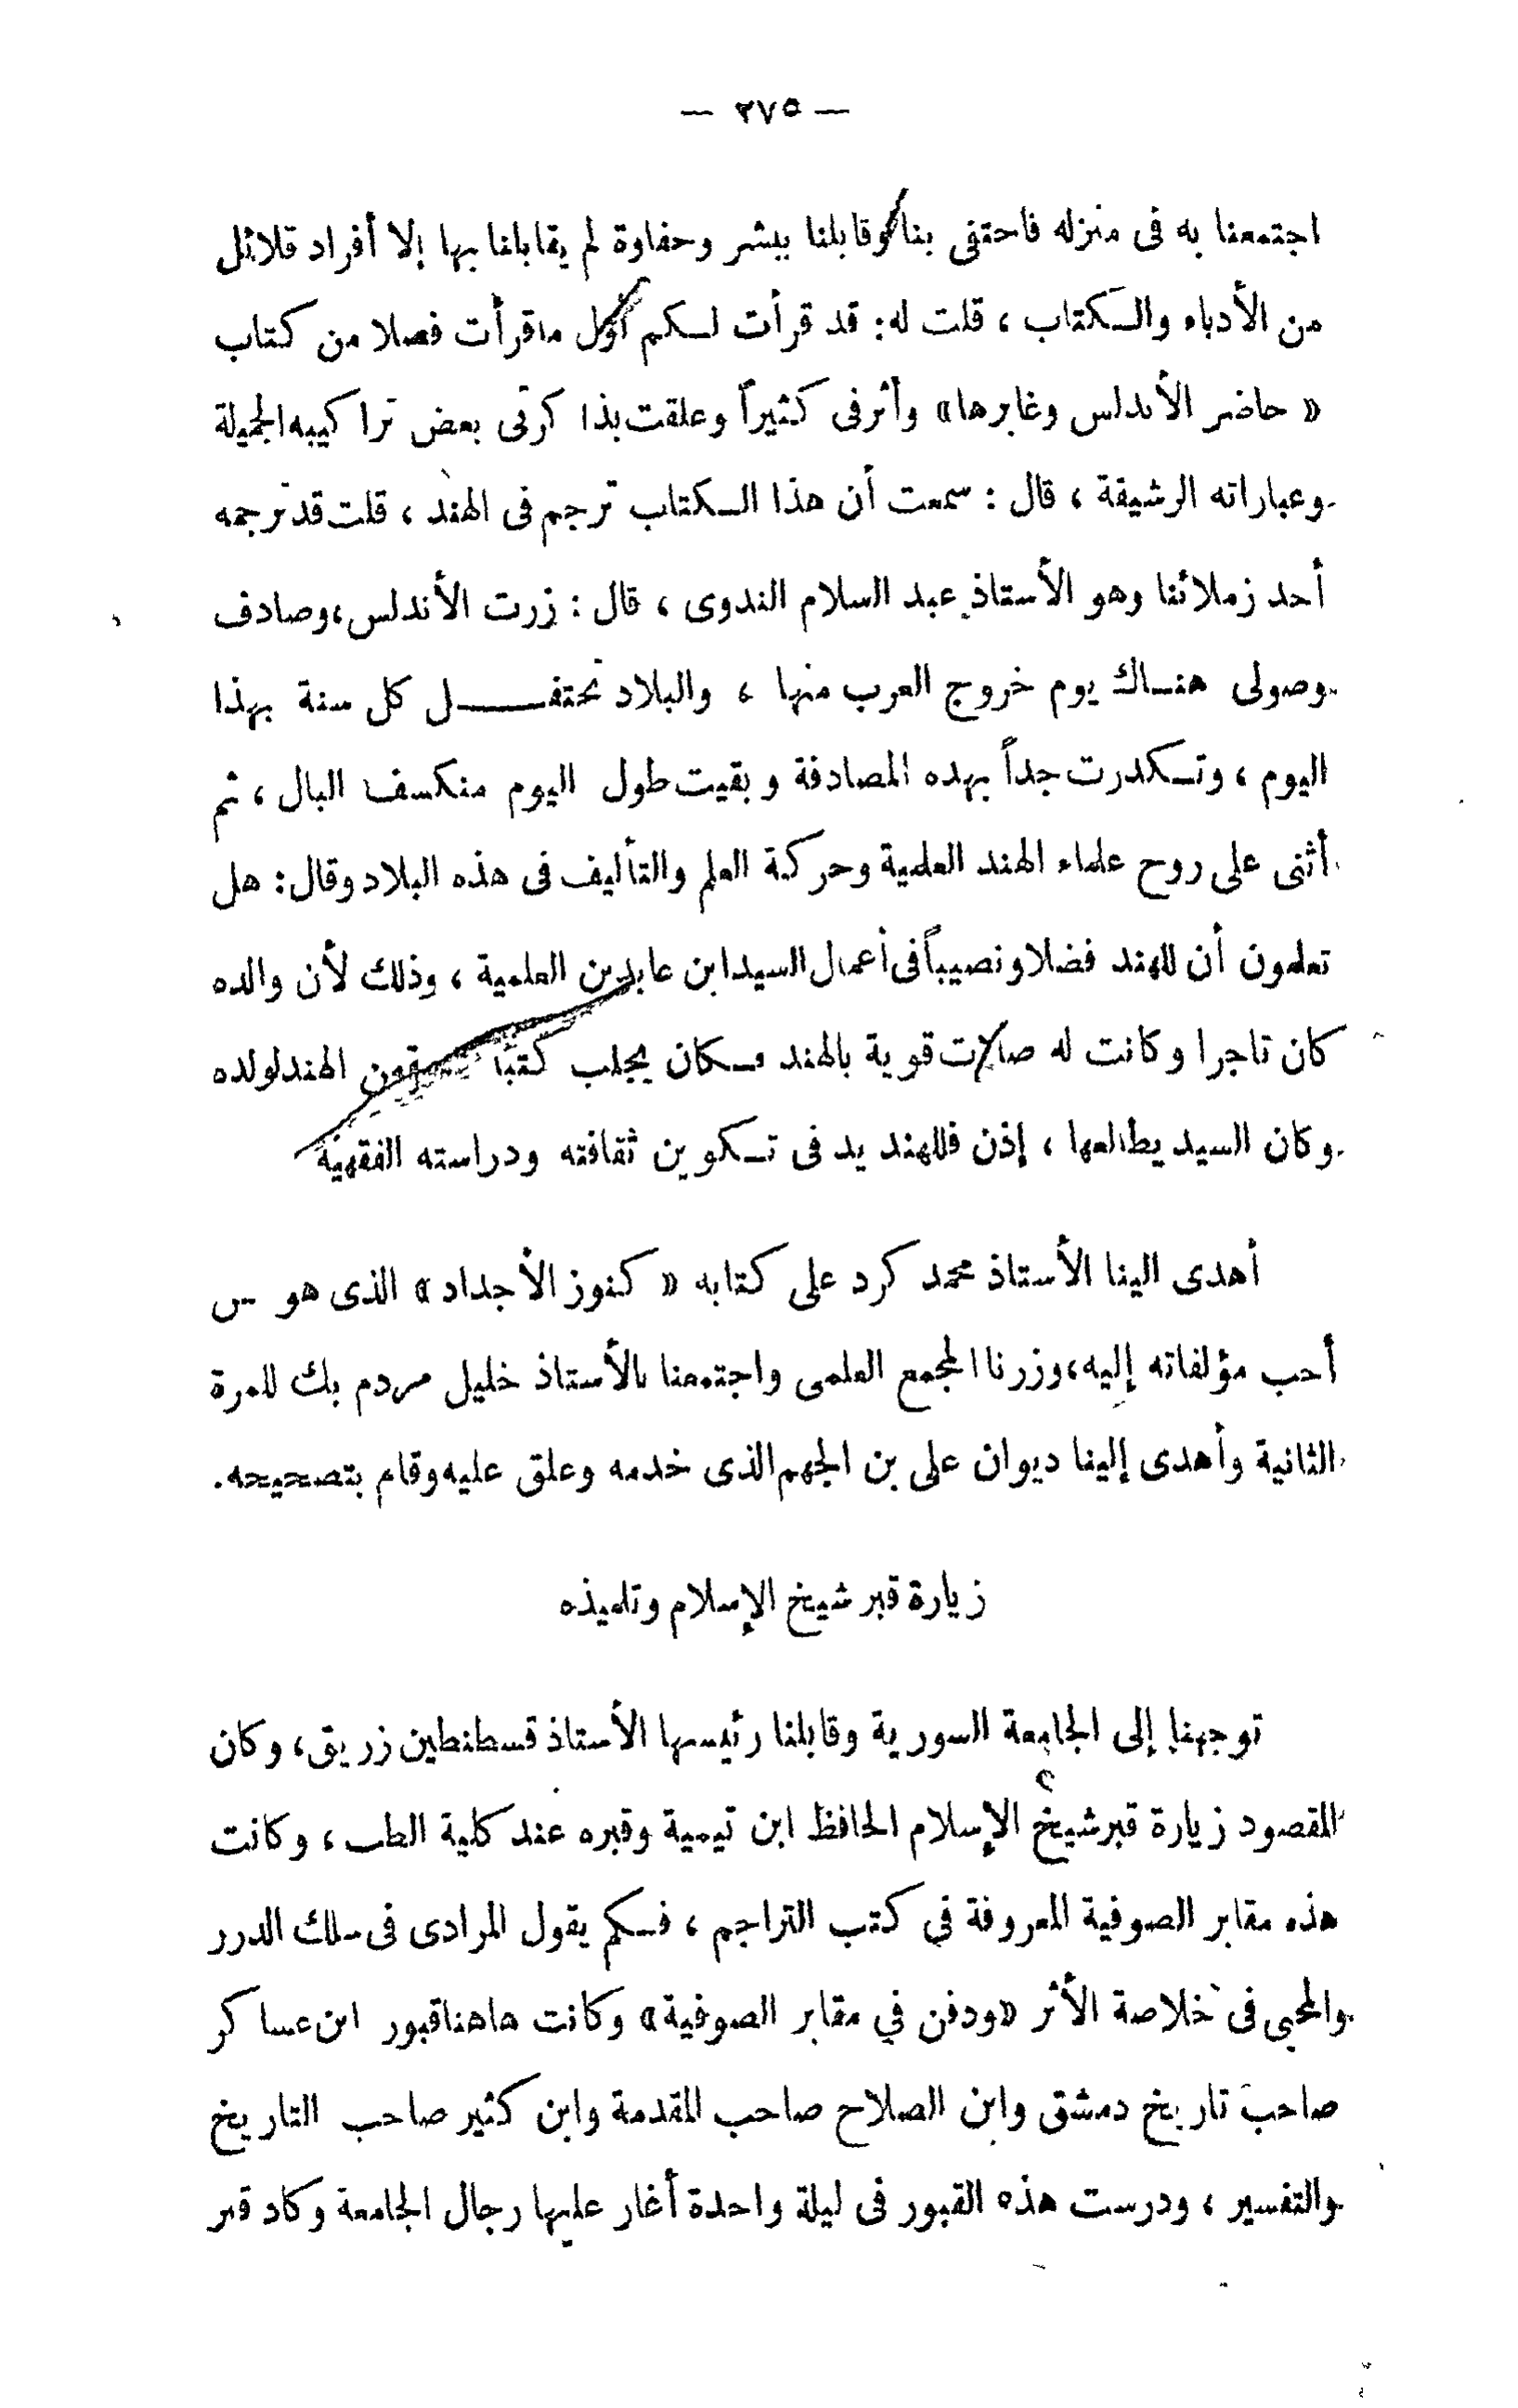 — ٢٧٥ —
اجتمعنا به فى منزله فاحتفى بنا وقابلنا ببشر وحفاوة لم يقابلنا بها إلا أفراد قلائل
من الأدباء والكتاب ، قلت له: قد قرأت لكم أول ماقرأت فصلا من كتاب
« حاضر الأندلس وغابرها» وأثر فى كثيراً وعلقت بذا كرتى بعض ترا كيبه الجميلة
وعباراته الرشيقة ، قال : سمعت أن هذا الكتاب ترجم فى الهند ، قلت قد ترجمه
أحد زملائنا وهو الأستاذ عبد السلام الندوى ، قال : زرت الأندلس،وصادف
وصولى هناك يوم خروج العرب منها ، والبلاد تحتفل كل سنة بهذا
اليوم ، وتكدرت جداً بهده المصادفة و بقيت طول اليوم منكسف البال ، ثم
أثنى على روح علماء الهند العلمية وحركة العلم والتأليف فى هذه البلاد وقال: هل
تعلمون أن للهند فضلا ونصيباً فى أعمال السيدابن عابدين العلمية ، وذلك لأن والده
كان تاجرا وكانت له صلات قوية بالهند فكان يجلب كتبا من الهندلولده
وكان السيد يطالعها ، إذن فللهند يد فى تكوين ثقافته ودراسته الفقهية
أهدى الينا الأستاذ محمد كرد على كتابه « كنوز الأجداد» الذى هو من
أحب مؤلفاته إليه،وزرنا المجمع العلمى واجتمعنا بالأستاذ خليل مردم بك للمرة
الثانية وأهدى إلينا ديوان على بن الجهم الذى خدمه وعلق عليه وقام بتصحيحه.
زيارة قبر شيخ الإسلام وتلميذه
توجهنا إلى الجامعة السورية وقابلنا رئيسها الأستاذ قسطنطين زريق، وكان
المقصود زيارة قبر شيخ الإسلام الحافظ ابن تيمية وقبره عند كلية الطب ، وكانت
هذه مقابر الصوفية المعروفة في كتب التراجم ، فكم يقول المرادى فى سلك الدرر
والمحبى فى خلاصة الأثر «ودفن في مقابر الصوفية» وكانت هاهنا قبور ابن عسا كر
صاحب تاريخ دمشق وابن الصلاح صاحب المقدمة وابن كثير صاحب التاريخ
والتفسير ، ودرست هذه القبور فى ليلة واحدة أغار عليها رجال الجامعة وكاد قبر